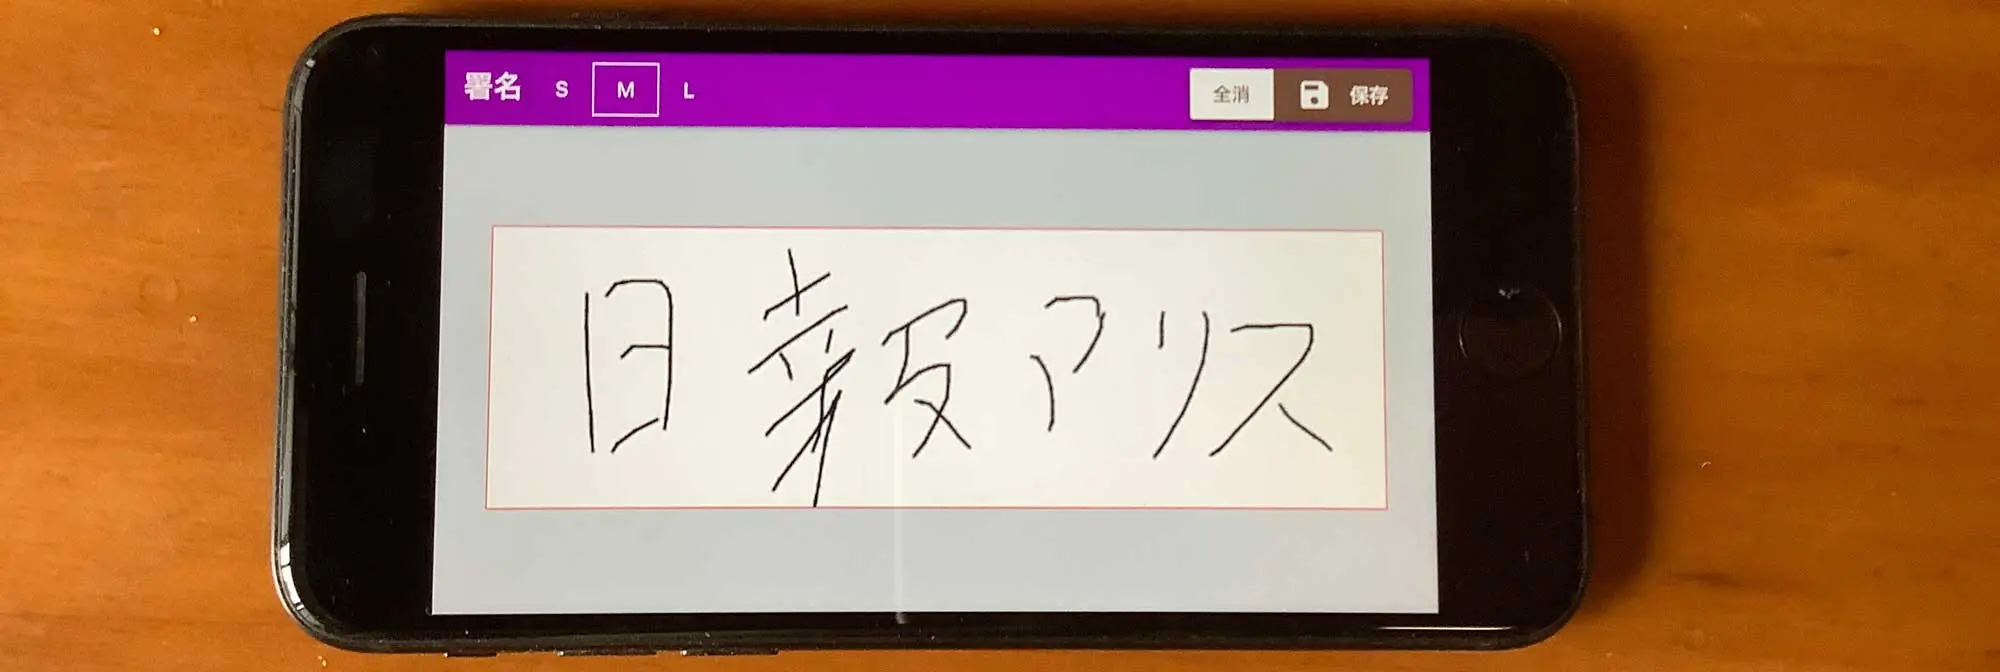 署名 S M L 全消 保存
日報アリス